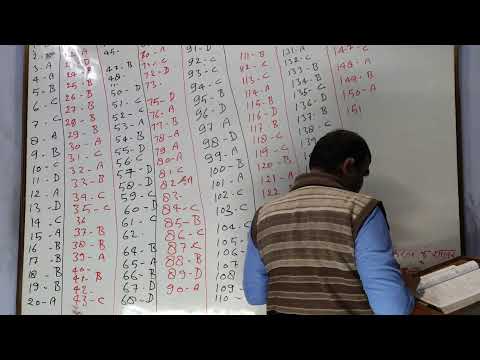 3 - A
4 - A
5 - B
6 - C
7 - C
8 - A
9 - B
10 - C
11 - D
12 - A
13 - D
14 - C
15 - A
16 - B
17 - B
18 - B
19 - B
20 - A
24 - B
25 - B
26 - B
27 - B
28 - B
29 - B
30 - A
31 - C
32 - A
33 - B
34 - C
35 - C
36
37 - B
38 - B
39 - A
40 -
41 - B
42 -
43 - C
45 -
47 - B
48 -
50 - D
51 - C
52 - C
53 - A
54 - B
55 - D
56 - C
57 - D
58 - D
59 - C
60 - D
61 - C
62
64 - B
65 - A
66 - B
67 - D
68 - D
70 - A
72 - D
73 -
75 - D
76 - A
77 - B
78 - A
79 - A
80 - A
81 - C
82 - A
83 -
84 - C
85 - B
86 - C
87 - C
88 - B
89 - D
90 - A
91 - D
92 - C
93 - C
94 - C
95 - B
96 - D
97 A
98 - D
99 - A
100 - B
101 - A
102 - C
103 - C
104 - C
105 -
106 -
107
108
109 -
110 -
111 - B
112 - C
113 - C
114 - A
115 - B
116 - D
117 B
118 - C
119 - C
120 - B
121 - A
122
131 - A
132 - C
133 - B
134 - B
135 - C
136 - D
137 - B
138 - C
139
147 - C
148 - A
149 - B
150 - A
151